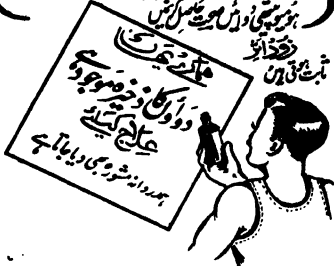 ہومیوپیتھی دوائیں صحت حاصل کریں
زود اثر
ثابت ہوتی ہیں
دواؤں کا ذخیرہ موجود ہے
علاج کیلئے
ہمدردانہ مشورہ بھی دیا جاتا ہے